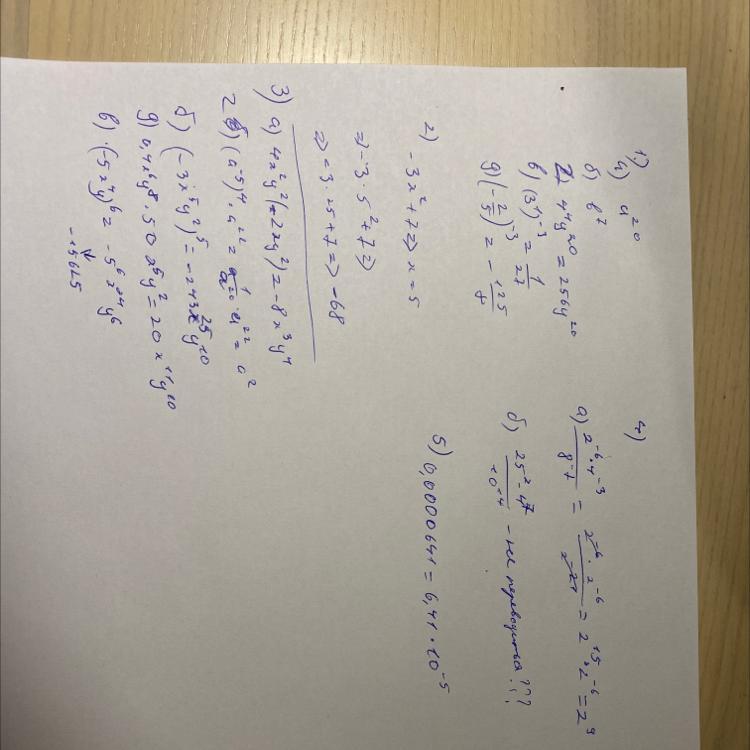 1)
а) a²⁰
б) b⁷
2) 4⁴y²⁰ = 256y²⁰
в) (3¹)⁻³ = 1/27
д) (-2/5)⁻³ = -125/8
2) -3x² + 7 => x = 5
=> -3 · 5² + 7 =>
=> -3 · 25 + 7 => -68
3) а) 4x²y²(-2xy²) = -8x³y⁴
(a⁻⁵)⁴ · a²² = 1/a²⁰ · a²² = a²
б) (-3x⁵y²)⁵ = -243x²⁵y¹⁰
д) 0,4x⁶y⁸ · 50x⁵y² = 20x¹¹y¹⁰
в) (-5x⁴y)⁶ = -5⁶x²⁴y⁶
-15625
4)
а) 2⁻⁶ · 4⁻³ / 8⁻⁷ = 2⁻⁶ · 2⁻⁶ / 2⁻²¹ = 2¹⁵ · 2⁻⁶ = 2⁹
б) 25² · 4⁷ / 10⁻⁴ - не переводится???
5) 0,0000641 = 6,41 · 10⁻⁵